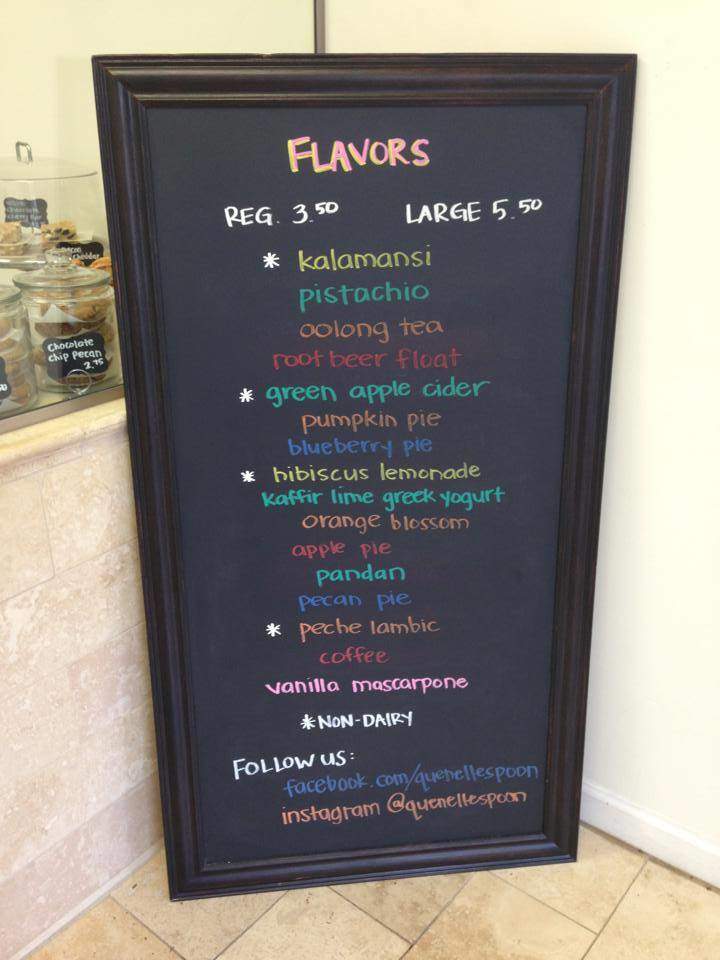 FLAVORS
REG. 3.50 LARGE 5.50
* kalamansi
pistachio
oolong tea
root beer float
* green apple cider
pumpkin pie
blueberry pie
* hibiscus lemonade
kaffir lime greek yogurt
orange blossom
apple pie
pandan
pecan pie
* peche lambic
coffee
vanilla mascarpone
*NON-DAIRY
FOLLOW US:
facebook.com/quenellespoon
instagram @quenellespoon
Chocolate
chip pecan
2.75